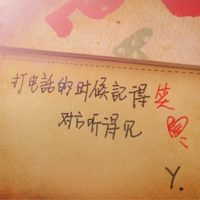 打电話的时候記得笑
对方听得见
Y.